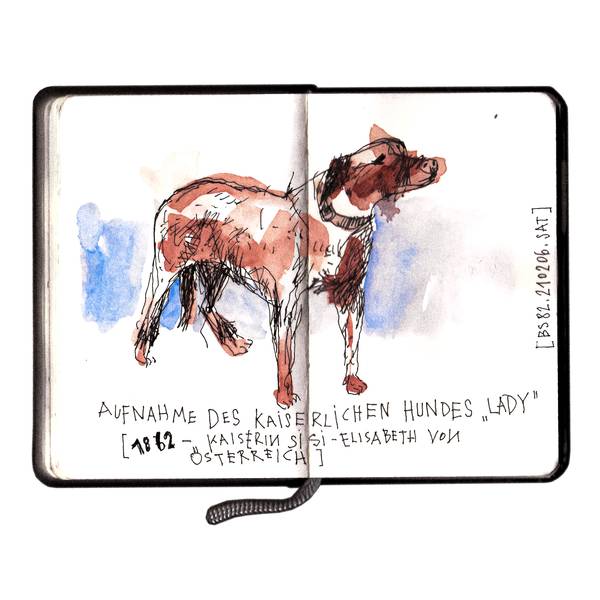 AUFNAHME DES KAISERLICHEN HUNDES „LADY"
[1862 – KAISERIN SISI-ELISABETH VON
ÖSTERREICH]
[BS82.210206.SAT]